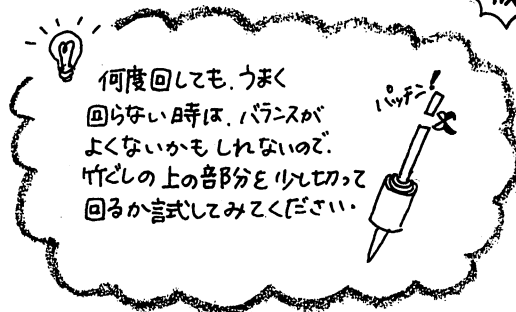 何度回しても、うまく
回らない時は、バランスが
よくないかもしれないので、
竹ぐしの上の部分を少し切って
回るか試してみてください。
パッチン!